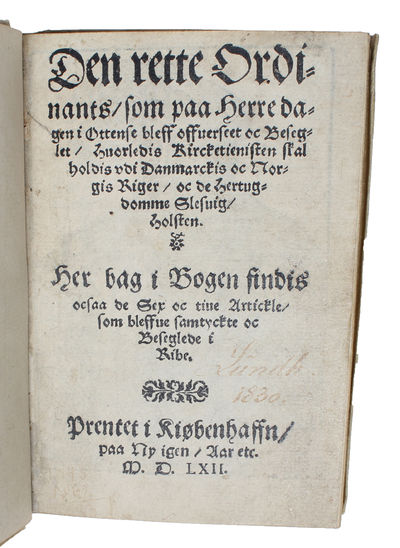 Den rette Ordi-
nants/ som paa Herre da-
gen i Ottense bleff offuerseet oc Beseg-
let/ Huorledis Kircketienisten skal
holdis vdi Danmarckis oc Nor-
gis Riger/ oc de Hertug-
domme Slesuig/
Holsten.
Her bag i Bogen findis
ocsaa de Sex oc tiue Artickle/
som bleffue samtyckte oc
Beseglede i
Ribe.
1830
Prentet i Kiøbenhaffn/
paa Ny igen/ Aar etc.
M. D. LXII.